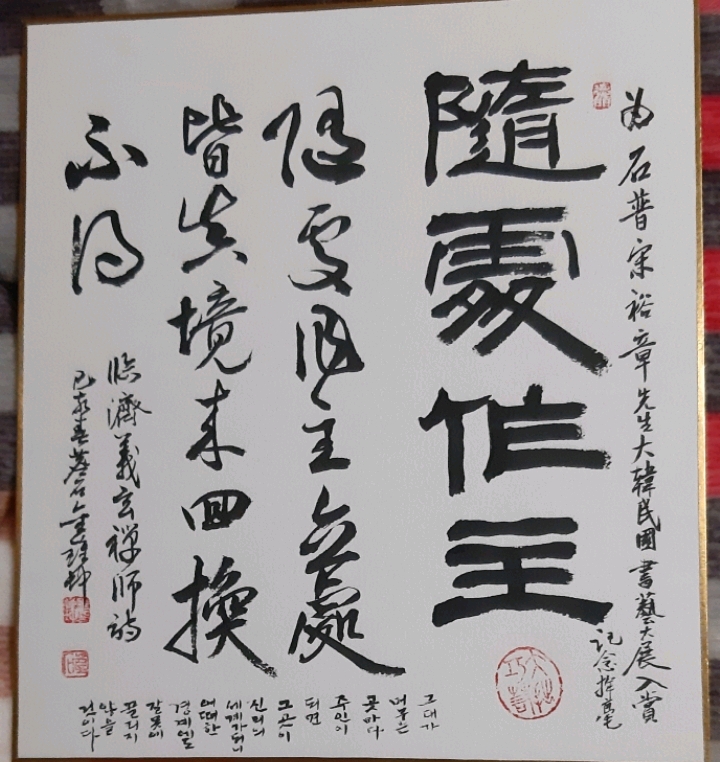 为石普宋裕章先生大韓民國書藝大展入賞
記念揮毫
隨處作主
隨處作主立處
皆真境来回換
不得
臨濟義玄禪師詩
己亥春
그대가
머무는
곳마다
주인이
되면
그곳이
진리의
세계가되니
어떠한
경계에도
잘못
끌리지
않을
것이다